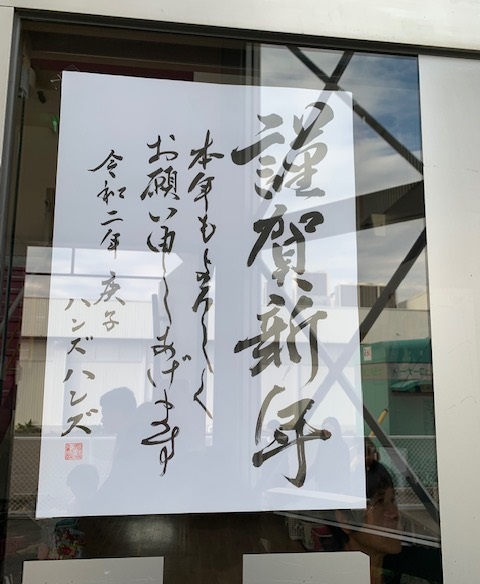 謹賀新年
本年もよろしく
お願い申しあげます
令和二年 庚子
ハンズハンズ